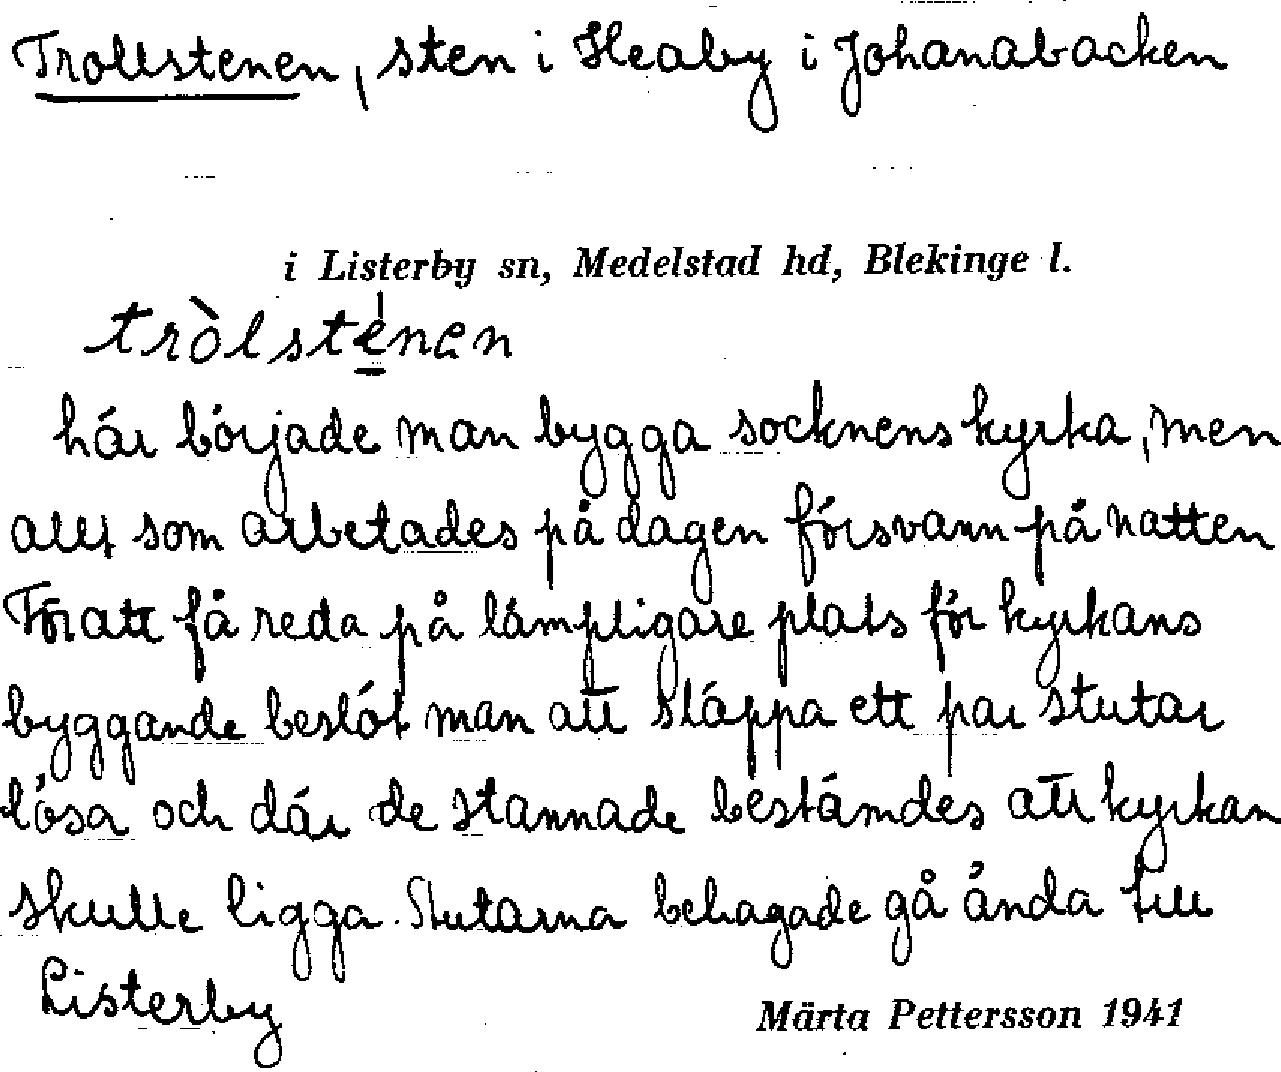 Trollstenen, sten i Heaby i Johanabacken
i Listerby sn, Medelstad hd, Blekinge l.
tròlsténen
här började man bygga socknens kyrka, men
allt som arbetades på dagen försvann på natten
För att få reda på lämpligare plats för kyrkans
byggande beslöt man att släppa ett par stutar
lösa och där de stannade bestämdes att kyrkan
skulle ligga. Stutarna behagade gå ända till
Listerby
Märta Pettersson 1941